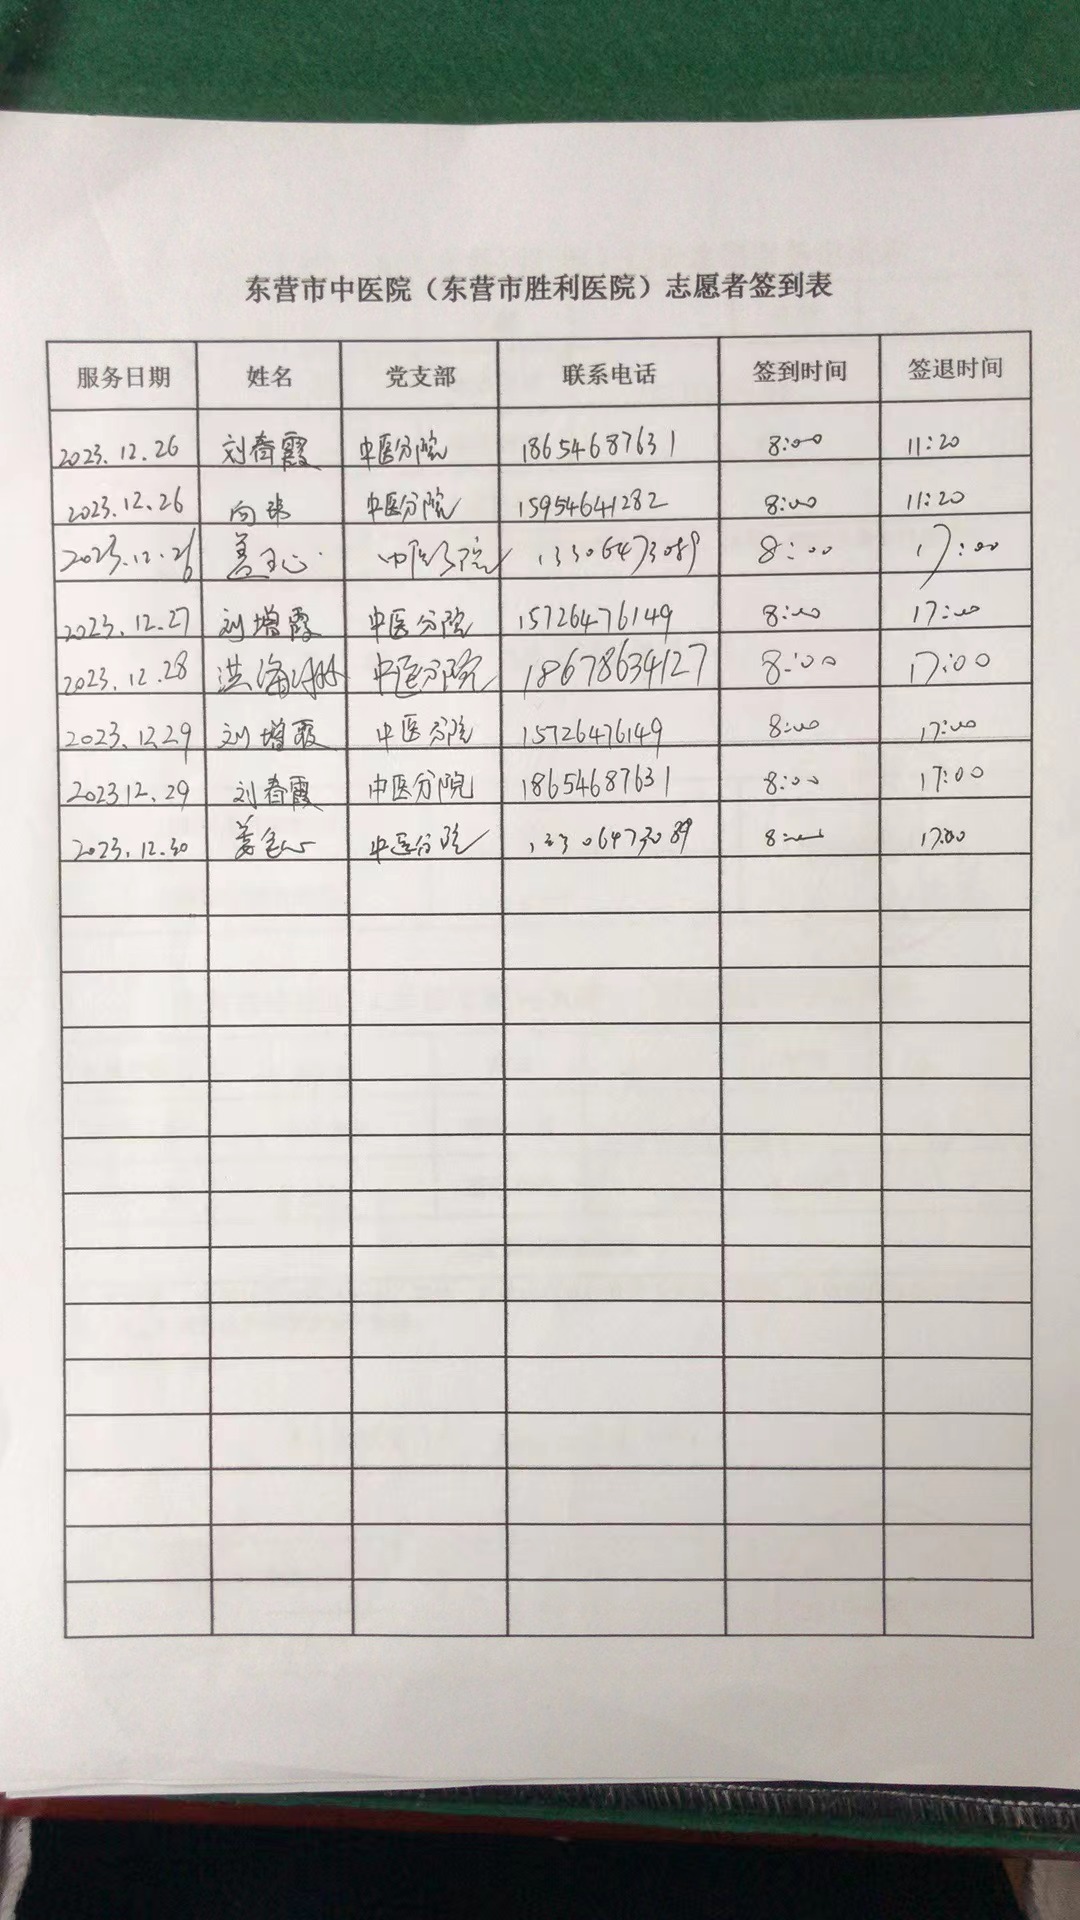 东营市中医院（东营市胜利医院）志愿者签到表
服务日期 姓名 党支部 联系电话 签到时间 签退时间
2023.12.26 刘春霞 中医分院 18654687631 8:00 11:20
2023.12.26 向 中医分院 15954641282 8:00 11:20
2023.12.26 中医分院 13306473089 8:00 17:00
2023.12.27 刘增霞 中医分院 15726476149 8:00 17:00
2023.12.28 洪海 中医分院 18678634127 8:00 17:00
2023.12.29 刘增霞 中医分院 15726476149 8:00 17:00
2023 12.29 刘春霞 中医分院 18654687631 8:00 17:00
2023.12.30 中医分院 13306473089 8:00 17:00